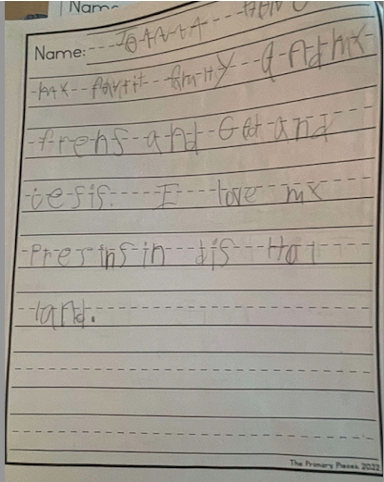 Nam
Name:
mx favrit famity a Ndmx
frens and God and
Jesis. I love mx
Presins in dis Hol
land.
The Primary Pieces 2022